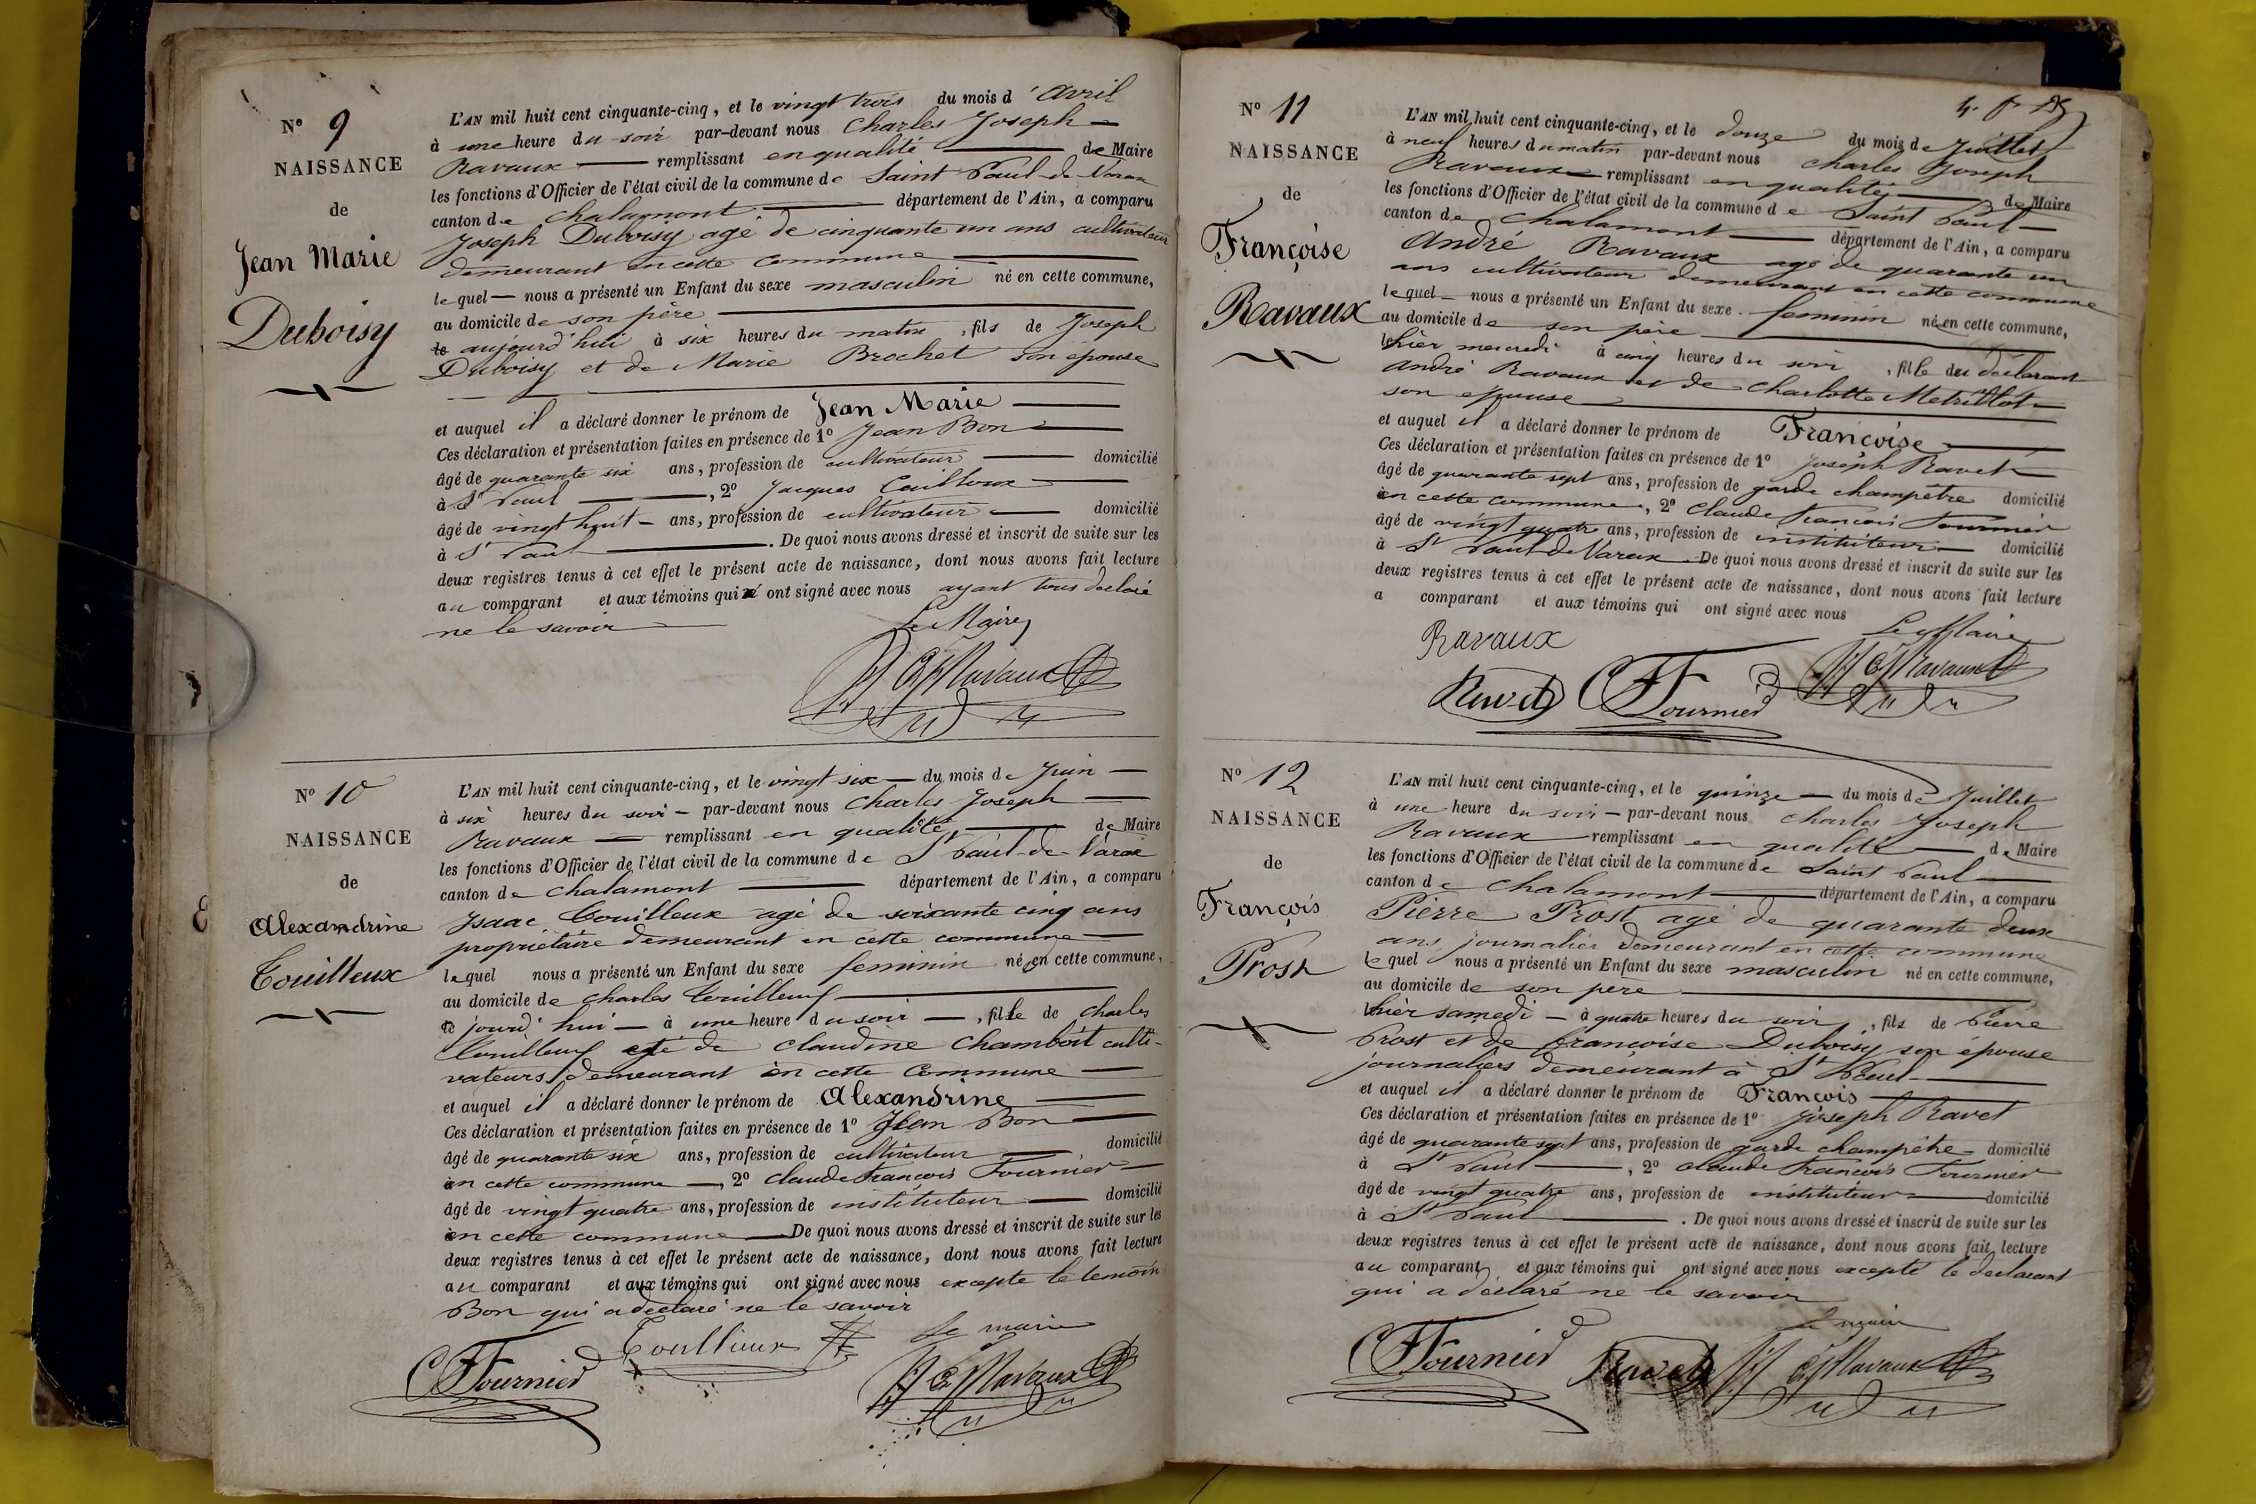 N° 9
NAISSANCE
de
Jean Marie
Duboisy
L'AN mil huit cent cinquante-cinq, et le vingt trois du mois d'Avril
à une heure du soir par-devant nous Charles Joseph
Ravaux remplissant en qualité de Maire
les fonctions d'Officier de l'état civil de la commune de Saint Paul de Varax
canton de Chalamont département de l'Ain, a comparu
Joseph Duboisy agé de cinquante un ans cultivateur
demeurant en cette commune
lequel nous a présenté un Enfant du sexe masculin né en cette commune,
au domicile de son père
le aujourd'hui à six heures du matin, fils de Joseph
Duboisy et de Marie Brochet son épouse
et auquel il a déclaré donner le prénom de Jean Marie
Ces déclaration et présentation faites en présence de 1° Jean Bon
âgé de quarante six ans, profession de cultivateur domicilié
à St Paul, 2° Jacques
âgé de vingt huit ans, profession de cultivateur domicilié
à St Paul. De quoi nous avons dressé et inscrit de suite sur les
deux registres tenus à cet effet le présent acte de naissance, dont nous avons fait lecture
au comparant et aux témoins qui ont signé avec nous ayant tous declaré
ne le savoir
Le Maire
Ravaux
N° 10
NAISSANCE
de
Alexandrine
Touilleux
L'AN mil huit cent cinquante-cinq, et le vingt six du mois de Juin
à six heures du soir par-devant nous Charles Joseph
Ravaux remplissant en qualité de Maire
les fonctions d'Officier de l'état civil de la commune de St Paul de Varax
canton de Chalamont département de l'Ain, a comparu
Isaac Touilleux agé de soixante cinq ans
propriétaire demeurant en cette commune
lequel nous a présenté un Enfant du sexe feminin né en cette commune,
au domicile de Charles Touilleux
ce jourd'hui à une heure du soir, fille de Charles
Touilleux et de Claudine Chamboit culti-
vateurs demeurant en cette commune
et auquel il a déclaré donner le prénom de Alexandrine
Ces déclaration et présentation faites en présence de 1° Jean Bon
âgé de quarante six ans, profession de cultivateur domicilié
en cette commune, 2° Claude François Fournier
âgé de vingt quatre ans, profession de instituteur domicilié
en cette commune De quoi nous avons dressé et inscrit de suite sur les
deux registres tenus à cet effet le présent acte de naissance, dont nous avons fait lecture
au comparant et aux témoins qui ont signé avec nous excepte le temoin
Bon qui a déclaré ne le savoir
Le maire
CF Fournier Touilleux Ravaux
N° 11
NAISSANCE
de
Françoise
Ravaux
L'AN mil huit cent cinquante-cinq, et le douze du mois de Juillet
à neuf heures du matin par-devant nous Charles Joseph
Ravaux remplissant en qualité de Maire
les fonctions d'Officier de l'état civil de la commune de Saint Paul
canton de Chalamont département de l'Ain, a comparu
André Ravaux agé de quarante un
ans cultivateur demeurant en cette commune
lequel nous a présenté un Enfant du sexe feminin né en cette commune,
au domicile de son père
hier mercredi à cinq heures du soir, fille du déclarant
André Ravaux et de Charlotte Metrillot
son epouse
et auquel il a déclaré donner le prénom de Françoise
Ces déclaration et présentation faites en présence de 1° Joseph Ravet
âgé de quarante sept ans, profession de garde champêtre domicilié
en cette commune, 2° Claude François Fournier
âgé de vingt quatre ans, profession de instituteur domicilié
à St Paul de Varax. De quoi nous avons dressé et inscrit de suite sur les
deux registres tenus à cet effet le présent acte de naissance, dont nous avons fait lecture
a comparant et aux témoins qui ont signé avec nous
Le Maire
Ravaux
Ravet CF Fournier Ravaux
N° 12
NAISSANCE
de
François
Prost
L'AN mil huit cent cinquante-cinq, et le quinze du mois de Juillet
à une heure du soir par-devant nous Charles Joseph
Ravaux remplissant en qualité de Maire
les fonctions d'Officier de l'état civil de la commune de Saint Paul
canton de Chalamont département de l'Ain, a comparu
Pierre Prost agé de quarante deux
ans journalier demeurant en cette commune
lequel nous a présenté un Enfant du sexe masculin né en cette commune,
au domicile de son père
hier samedi à quatre heures du soir, fils de Pierre
Prost et de Françoise Duboisy son épouse
journaliers demeurant à St Paul
et auquel il a déclaré donner le prénom de François
Ces déclaration et présentation faites en présence de 1° Joseph Ravet
âgé de quarante sept ans, profession de garde champêtre domicilié
à St Paul, 2° Claude François Fournier
âgé de vingt quatre ans, profession de instituteur domicilié
à St Paul. De quoi nous avons dressé et inscrit de suite sur les
deux registres tenus à cet effet le présent acte de naissance, dont nous avons fait lecture
au comparant et aux témoins qui ont signé avec nous excepté le declarant
qui a déclaré ne le savoir
Le maire
CF Fournier Ravet Ravaux